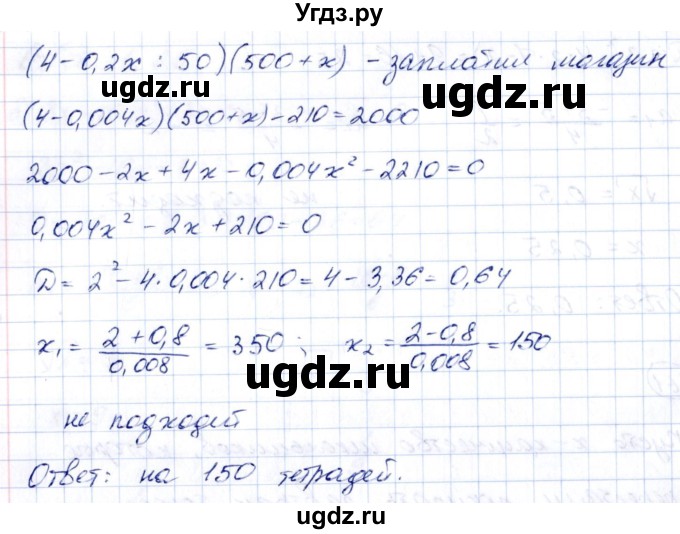 Угдз.ру
(4-0,2x : 50)(500+x) - заплатил магазин
ugdz.ru ugdz.ru
(4-0,004x)(500+x)-210=2000
2000-2x+4x-0,004x²-2210=0
0,004x²-2x+210=0
D=2²-4·0,004·210=4-3,36=0,64
x₁=\frac{2+0,8}{0,008}=350; x₂=\frac{2-0,8}{0,008}=150
ugdz.ru ugdz.ru
не подходит
Ответ: на 150 тетрадей.
ugdz.ru